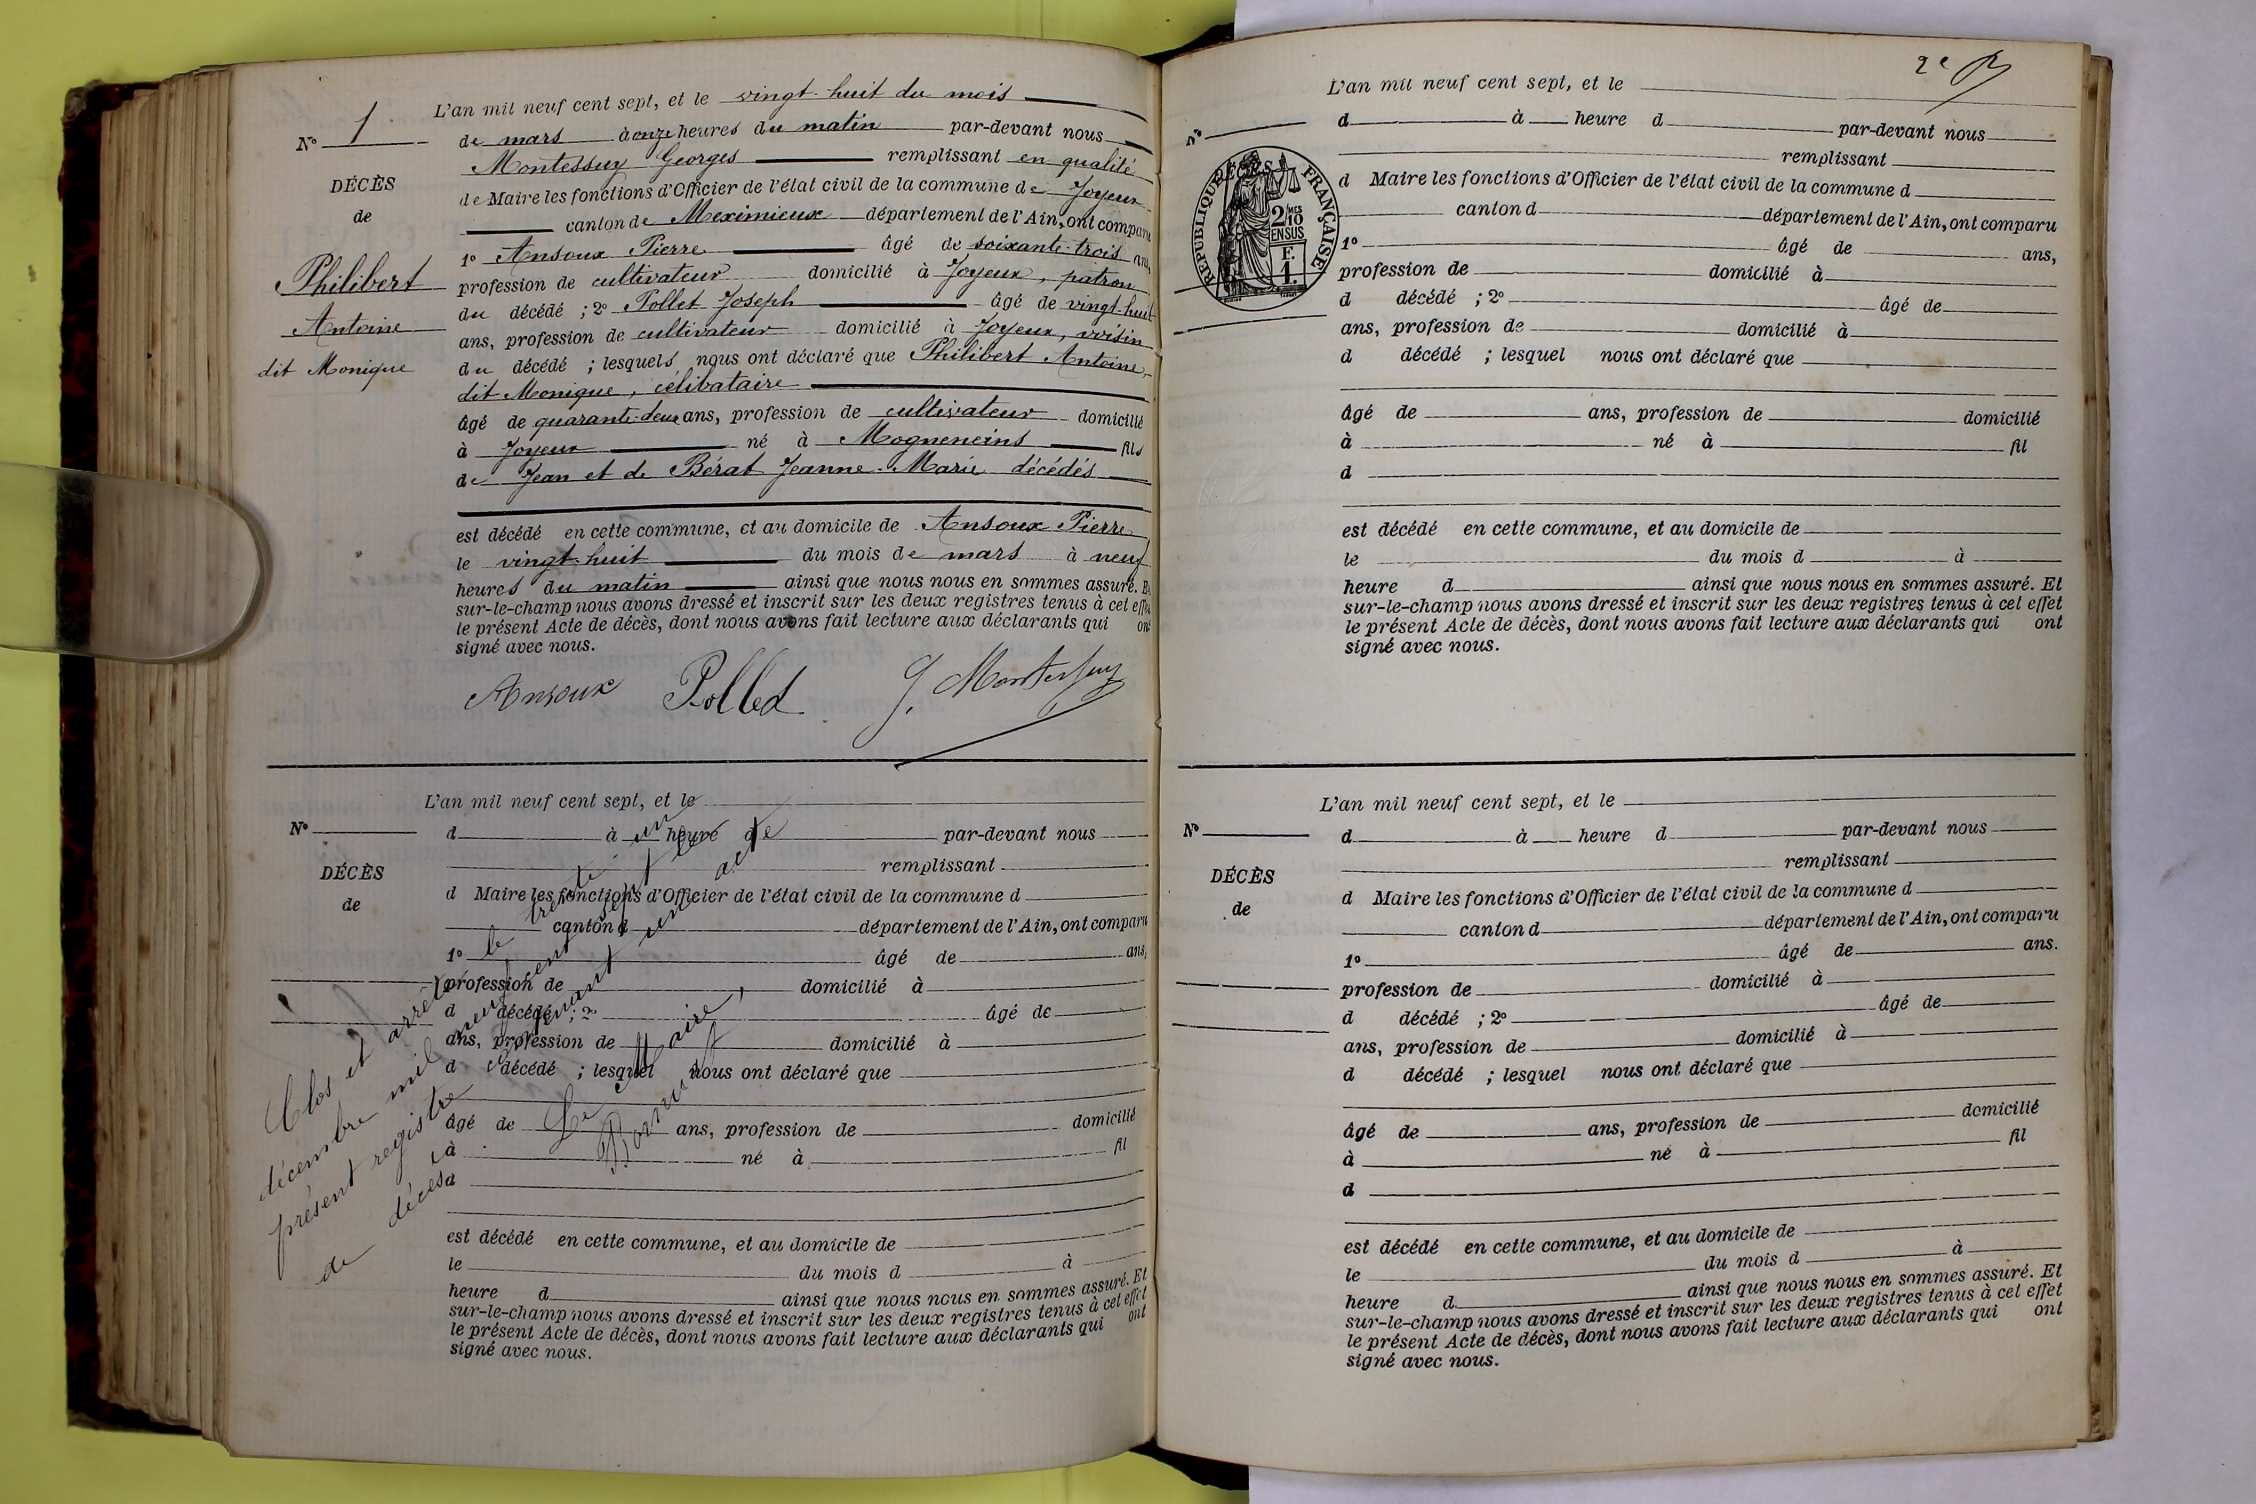 N° 1
DÉCÈS
de
Philibert
Antoine
dit Monique
L'an mil neuf cent sept, et le vingt-huit du mois
de mars à onze heures du matin par-devant nous
Montessuy Georges remplissant en qualité
de Maire les fonctions d'Officier de l'état civil de la commune de Joyeux
canton de Meximieux département de l'Ain, ont comparu
1° Ansoux Pierre âgé de soixante-trois ans,
profession de cultivateur domicilié à Joyeux, patron
du décédé ; 2° Pollet Joseph âgé de vingt-huit
ans, profession de cultivateur domicilié à Joyeux, voisin
du décédé ; lesquels nous ont déclaré que Philibert Antoine,
dit Monique, célibataire
âgé de quarante-deux ans, profession de cultivateur domicilié
à Joyeux né à Mogneneins fils
de Jean et de Bérat Jeanne-Marie décédés
est décédé en cette commune, et au domicile de Ansoux Pierre
le vingt-huit du mois de mars à neuf
heures du matin ainsi que nous nous en sommes assuré. Et
sur-le-champ nous avons dressé et inscrit sur les deux registres tenus à cet effet
le présent Acte de décès, dont nous avons fait lecture aux déclarants qui ont
signé avec nous.
Ansoux Pollet G. Montessuy
N°
DÉCÈS
de
L'an mil neuf cent sept, et le
d à heure d par-devant nous
remplissant
d Maire les fonctions d'Officier de l'état civil de la commune d
canton d département de l'Ain, ont comparu
1° âgé de ans,
profession de domicilié à
d décédé ; 2° âgé de
ans, profession de domicilié à
d décédé ; lesquel nous ont déclaré que
âgé de ans, profession de domicilié
à né à fil
d
est décédé en cette commune, et au domicile de
le du mois d à
heure d ainsi que nous nous en sommes assuré. Et
sur-le-champ nous avons dressé et inscrit sur les deux registres tenus à cet effet
le présent Acte de décès, dont nous avons fait lecture aux déclarants qui ont
signé avec nous.
Clos et arrêté le trente un
décembre mil neuf cent sept le
présent registre contenant un acte
de décès,
Le Maire,
2e
N°
RÉPUBLIQUE FRANÇAISE
2/10 MES
EN SUS
F.
1.
DÉCÈS
L'an mil neuf cent sept, et le
d à heure d par-devant nous
remplissant
d Maire les fonctions d'Officier de l'état civil de la commune d
canton d département de l'Ain, ont comparu
1° âgé de ans,
profession de domicilié à
d décédé ; 2° âgé de
ans, profession de domicilié à
d décédé ; lesquel nous ont déclaré que
âgé de ans, profession de domicilié
à né à fil
d
est décédé en cette commune, et au domicile de
le du mois d à
heure d ainsi que nous nous en sommes assuré. Et
sur-le-champ nous avons dressé et inscrit sur les deux registres tenus à cet effet
le présent Acte de décès, dont nous avons fait lecture aux déclarants qui ont
signé avec nous.
N°
DÉCÈS
de
L'an mil neuf cent sept, et le
d à heure d par-devant nous
remplissant
d Maire les fonctions d'Officier de l'état civil de la commune d
canton d département de l'Ain, ont comparu
1° âgé de ans.
profession de domicilié à
d décédé ; 2° âgé de
ans, profession de domicilié à
d décédé ; lesquel nous ont déclaré que
âgé de ans, profession de domicilié
à né à fil
d
est décédé en cette commune, et au domicile de
le du mois d à
heure d ainsi que nous nous en sommes assuré. Et
sur-le-champ nous avons dressé et inscrit sur les deux registres tenus à cet effet
le présent Acte de décès, dont nous avons fait lecture aux déclarants qui ont
signé avec nous.